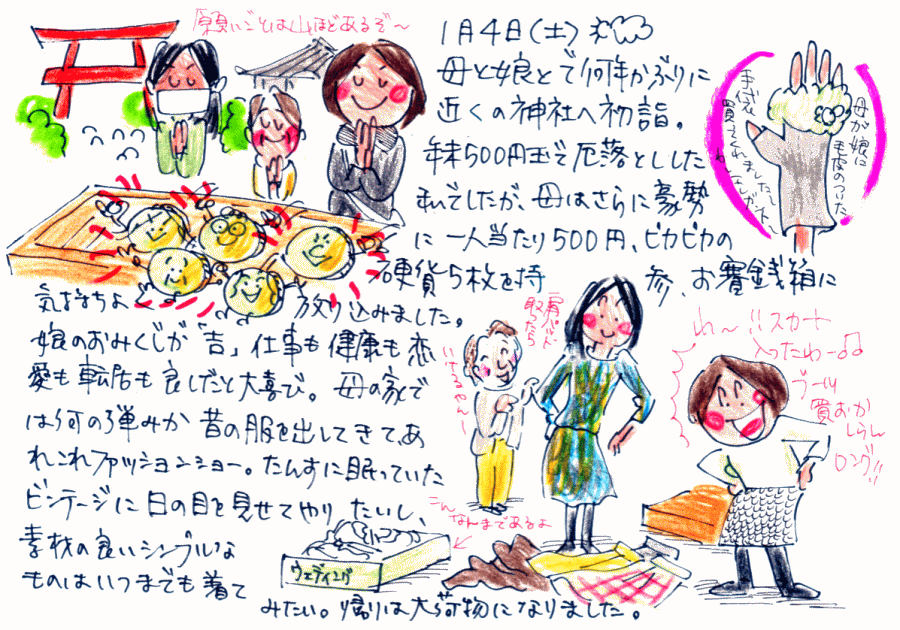 願いごとは山ほどあるぞ〜
1月4日(土)
母と娘とで何年かぶりに
近くの神社へ初詣。
年末500円玉で厄落としした
私でしたが、母はさらに豪勢
に一人当たり500円、ピカピカの
硬貨5枚を持参、お賽銭箱に
気持ちよく放り込みました。
娘のおみくじが「吉」仕事も健康も恋
愛も転居も良しだと大喜び。母の家で
は何の弾みか昔の服を出してきてあ
れこれファッションショー。たんすに眠っていた
ビンテージに日の目を見せてやりたいし、
素材の良いシンプルな
ものはいつまでも着て
みたい。帰りは大荷物になりました。
母が娘に
毛皮のついた
手袋
買ってくれました。
肩パッド
取ったら
いけるやん〜
わ〜!!スカート
入ったわ〜♫
ブーツ
買おか
しらん
ロング!!
こんな
なんまであるよ
ウェディング